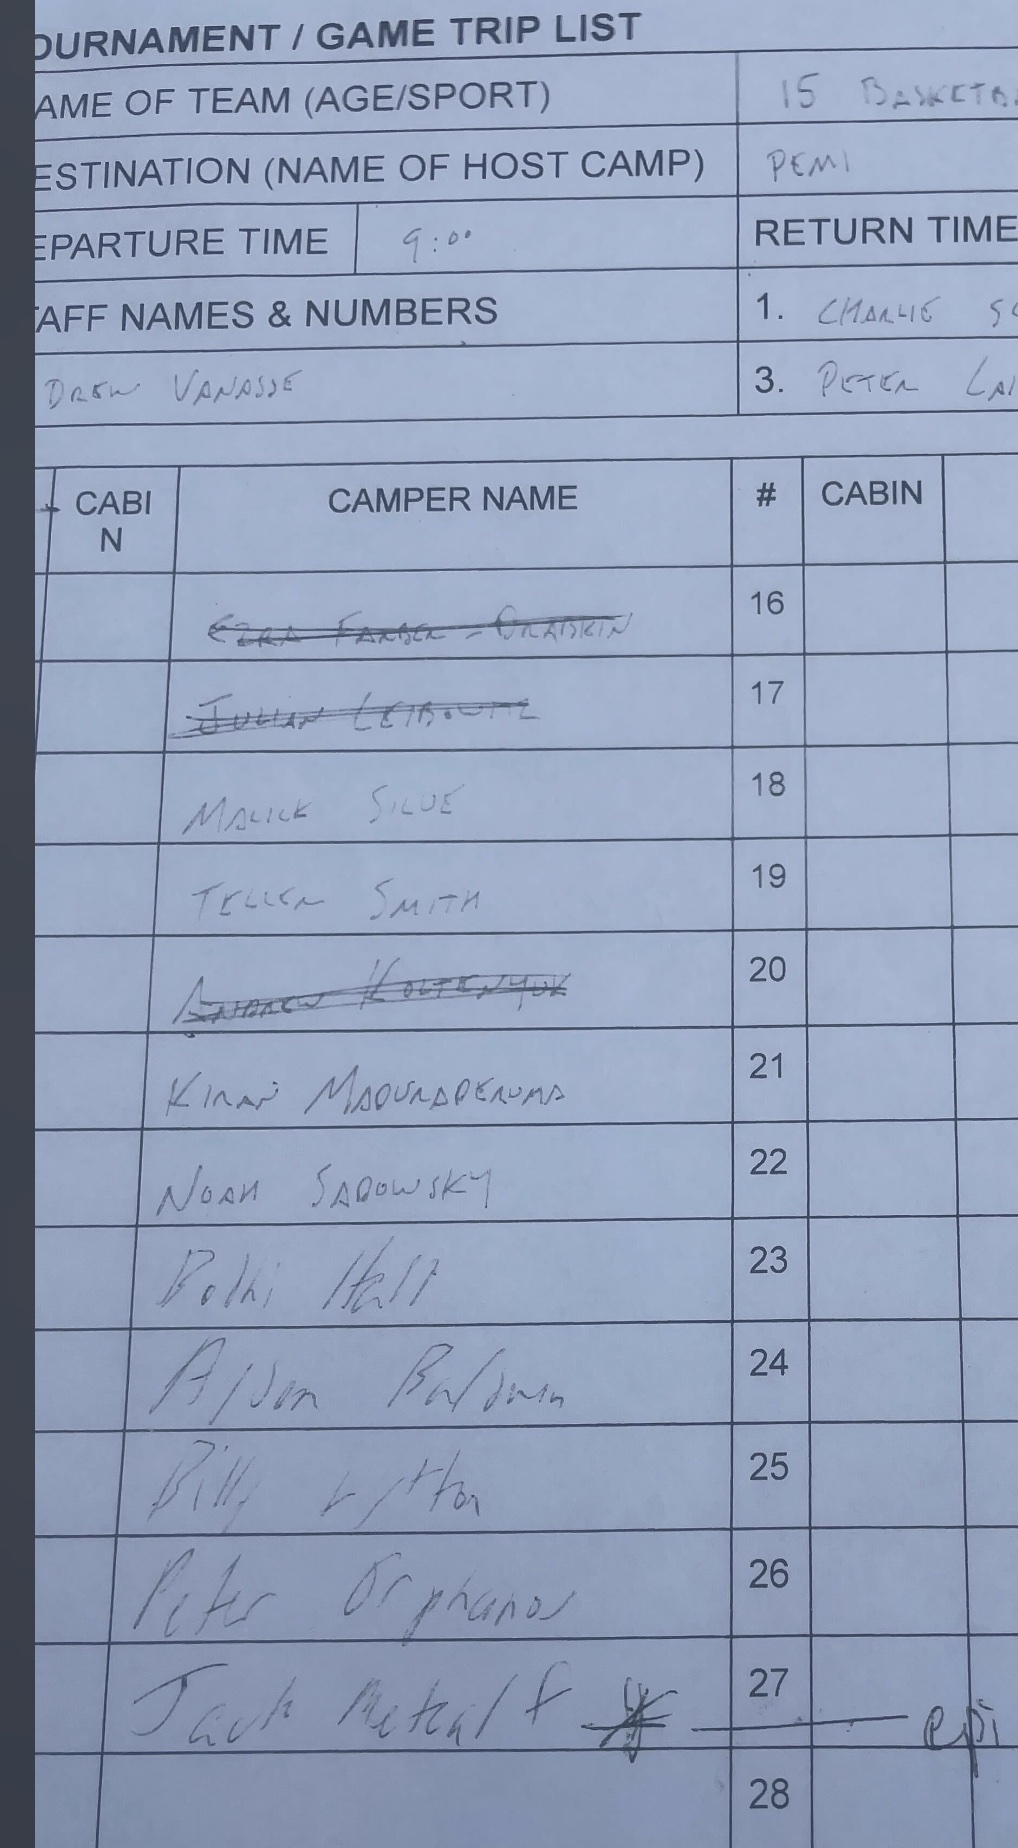 OURNAMENT / GAME TRIP LIST
AME OF TEAM (AGE/SPORT) 15 BASKETB
ESTINATION (NAME OF HOST CAMP) PEMI
EPARTURE TIME 9:00 RETURN TIME
TAFF NAMES & NUMBERS 1. CHARLIE SC
DREW VANASSE 3. PETER LAI
CABI
N CAMPER NAME # CABIN
EZRA FARBER-GRADKIN 16
JULIAN LEIBOWITZ 17
MALICK SILUE 18
TELLER SMITH 19
ANDREW KOLTENYUK 20
KIRAN MADURAPERUMA 21
NOAH SADOWSKY 22
Bodhi Hall 23
Aidan Baldwin 24
Billy Lytton 25
Peter Orphanos 26
Jack Metcalf 27 epi
28